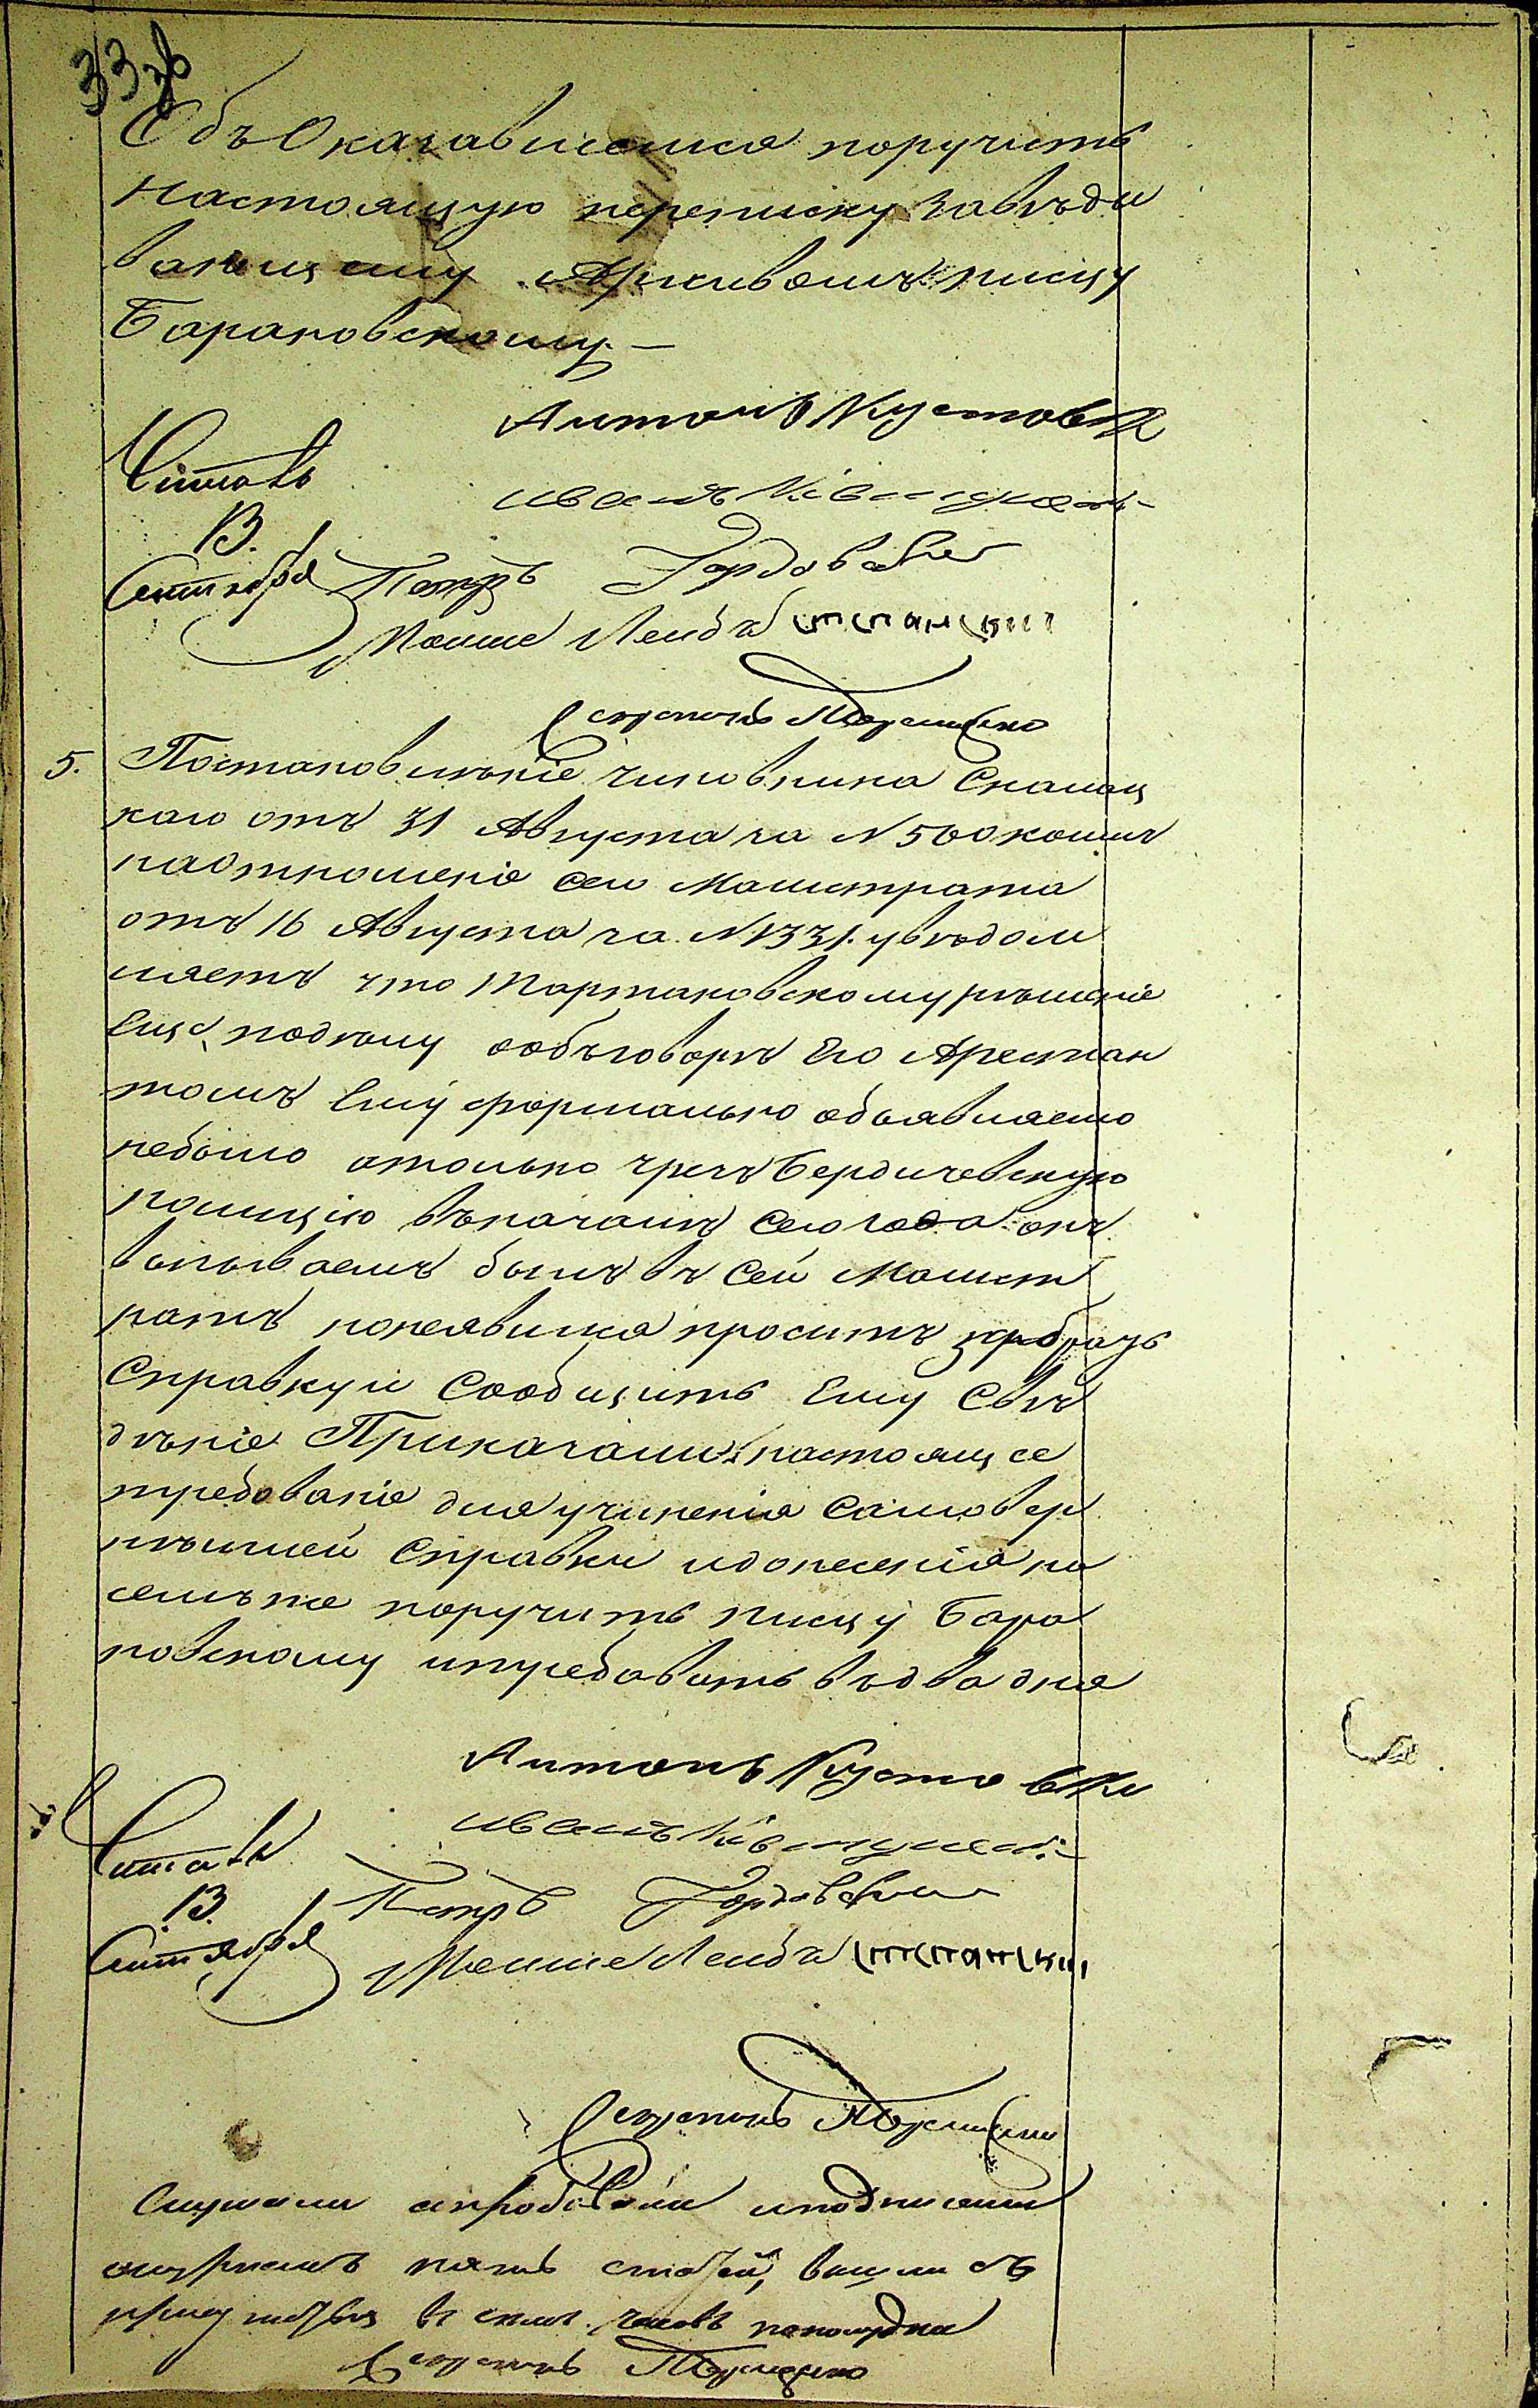 Объ Оказавшемся поручить
настоящую переписку Завѣды
вающему Архивомъ писцу
Барановскому —
Антонъ Кустовски
Читалъ
Иванъ
13.
Сентября Петръ Гордовски
Мошке Лейба
Секретарь
5. Постановленіе чиновника Скалец
каго отъ 31 Августа за N 560 коимъ
на Отношеніе сего Магистрата
отъ 16 Августа за N 1331. увѣдом
ляетъ что Тартаковскому рѣшеніе
Еще по дѣлу объ оговорѣ Его Арестан
томъ Ему формально объявляемо
небыло а только чрезъ Бердичевскую
полицію въ началѣ сего года онъ
вызываемъ былъ въ Сей Магист
ратъ но неявился проситъ
Справку и Сообщить Ему Свѣ
дѣніе Приказали: настоящее
требованіе для учиненія Самовѣр
нѣйшей Справки и донесенія на
семъ же поручить писцу Бара
новскому и требовать въ два дня
Антонъ Кустовски
Читалъ
Иванъ
13.
Сентября
Петръ Гордовски
Мошке Лейба
Секретарь
Слушали апробовали и подписали
журналъ пять статей, вышли съ
присутствія въ часовъ пополудни
Секретарь